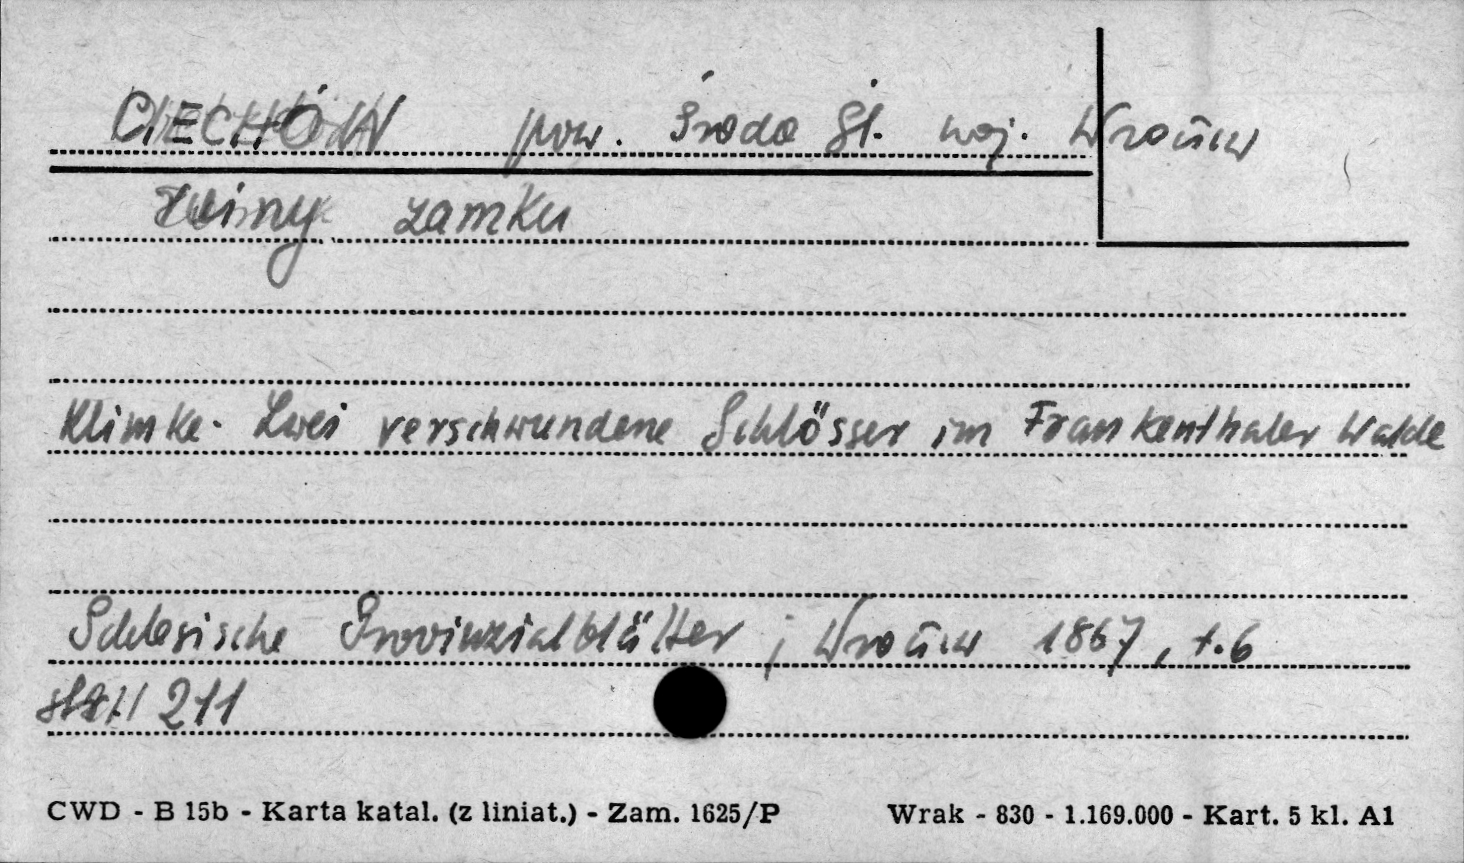 CIECHÓW pow. Środa Śl. woj. Wrocław
ruiny zamku
Klimke. Zwei verschwundene Schlösser im Frankenthaler Walde
Schlesische Provinzialblätter ; Wrocław 1867, t.6
211
CWD - B 15b - Karta katal. (z liniat.) - Zam. 1625/P Wrak - 830 - 1.169.000 - Kart. 5 kl. A1